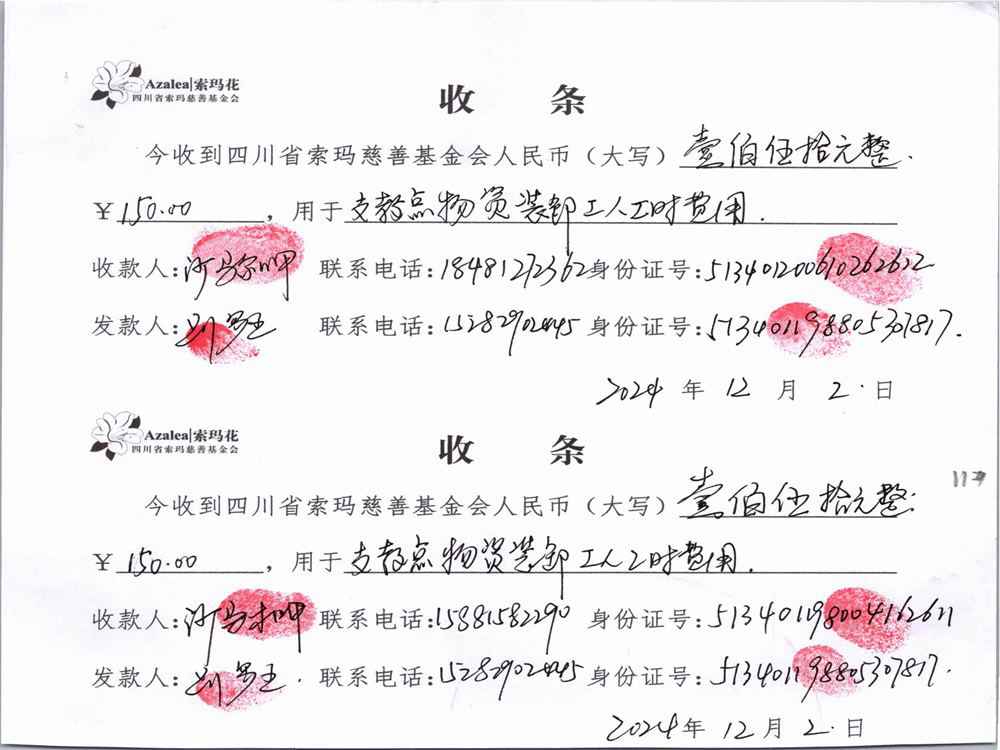 Azalea|索玛花
四川省索玛慈善基金会
收 条
今收到四川省索玛慈善基金会人民币（大写）壹佰伍拾元整.
¥150.00，用于支教点物资装卸工人工时费用.
收款人:沙马 联系电话:18481272362身份证号:513401200610262622
发款人: 联系电话:15282902445身份证号:513401198805307817.
2024年12月2.日
Azalea|索玛花
四川省索玛慈善基金会
收 条
117
今收到四川省索玛慈善基金会人民币（大写）壹佰伍拾元整.
¥150.00，用于支教点物资装卸工人工时费用.
收款人:沙马 联系电话:15881582290身份证号:513401198004162611
发款人: 联系电话:15282902445身份证号:513401198805307817.
2024年12月2.日